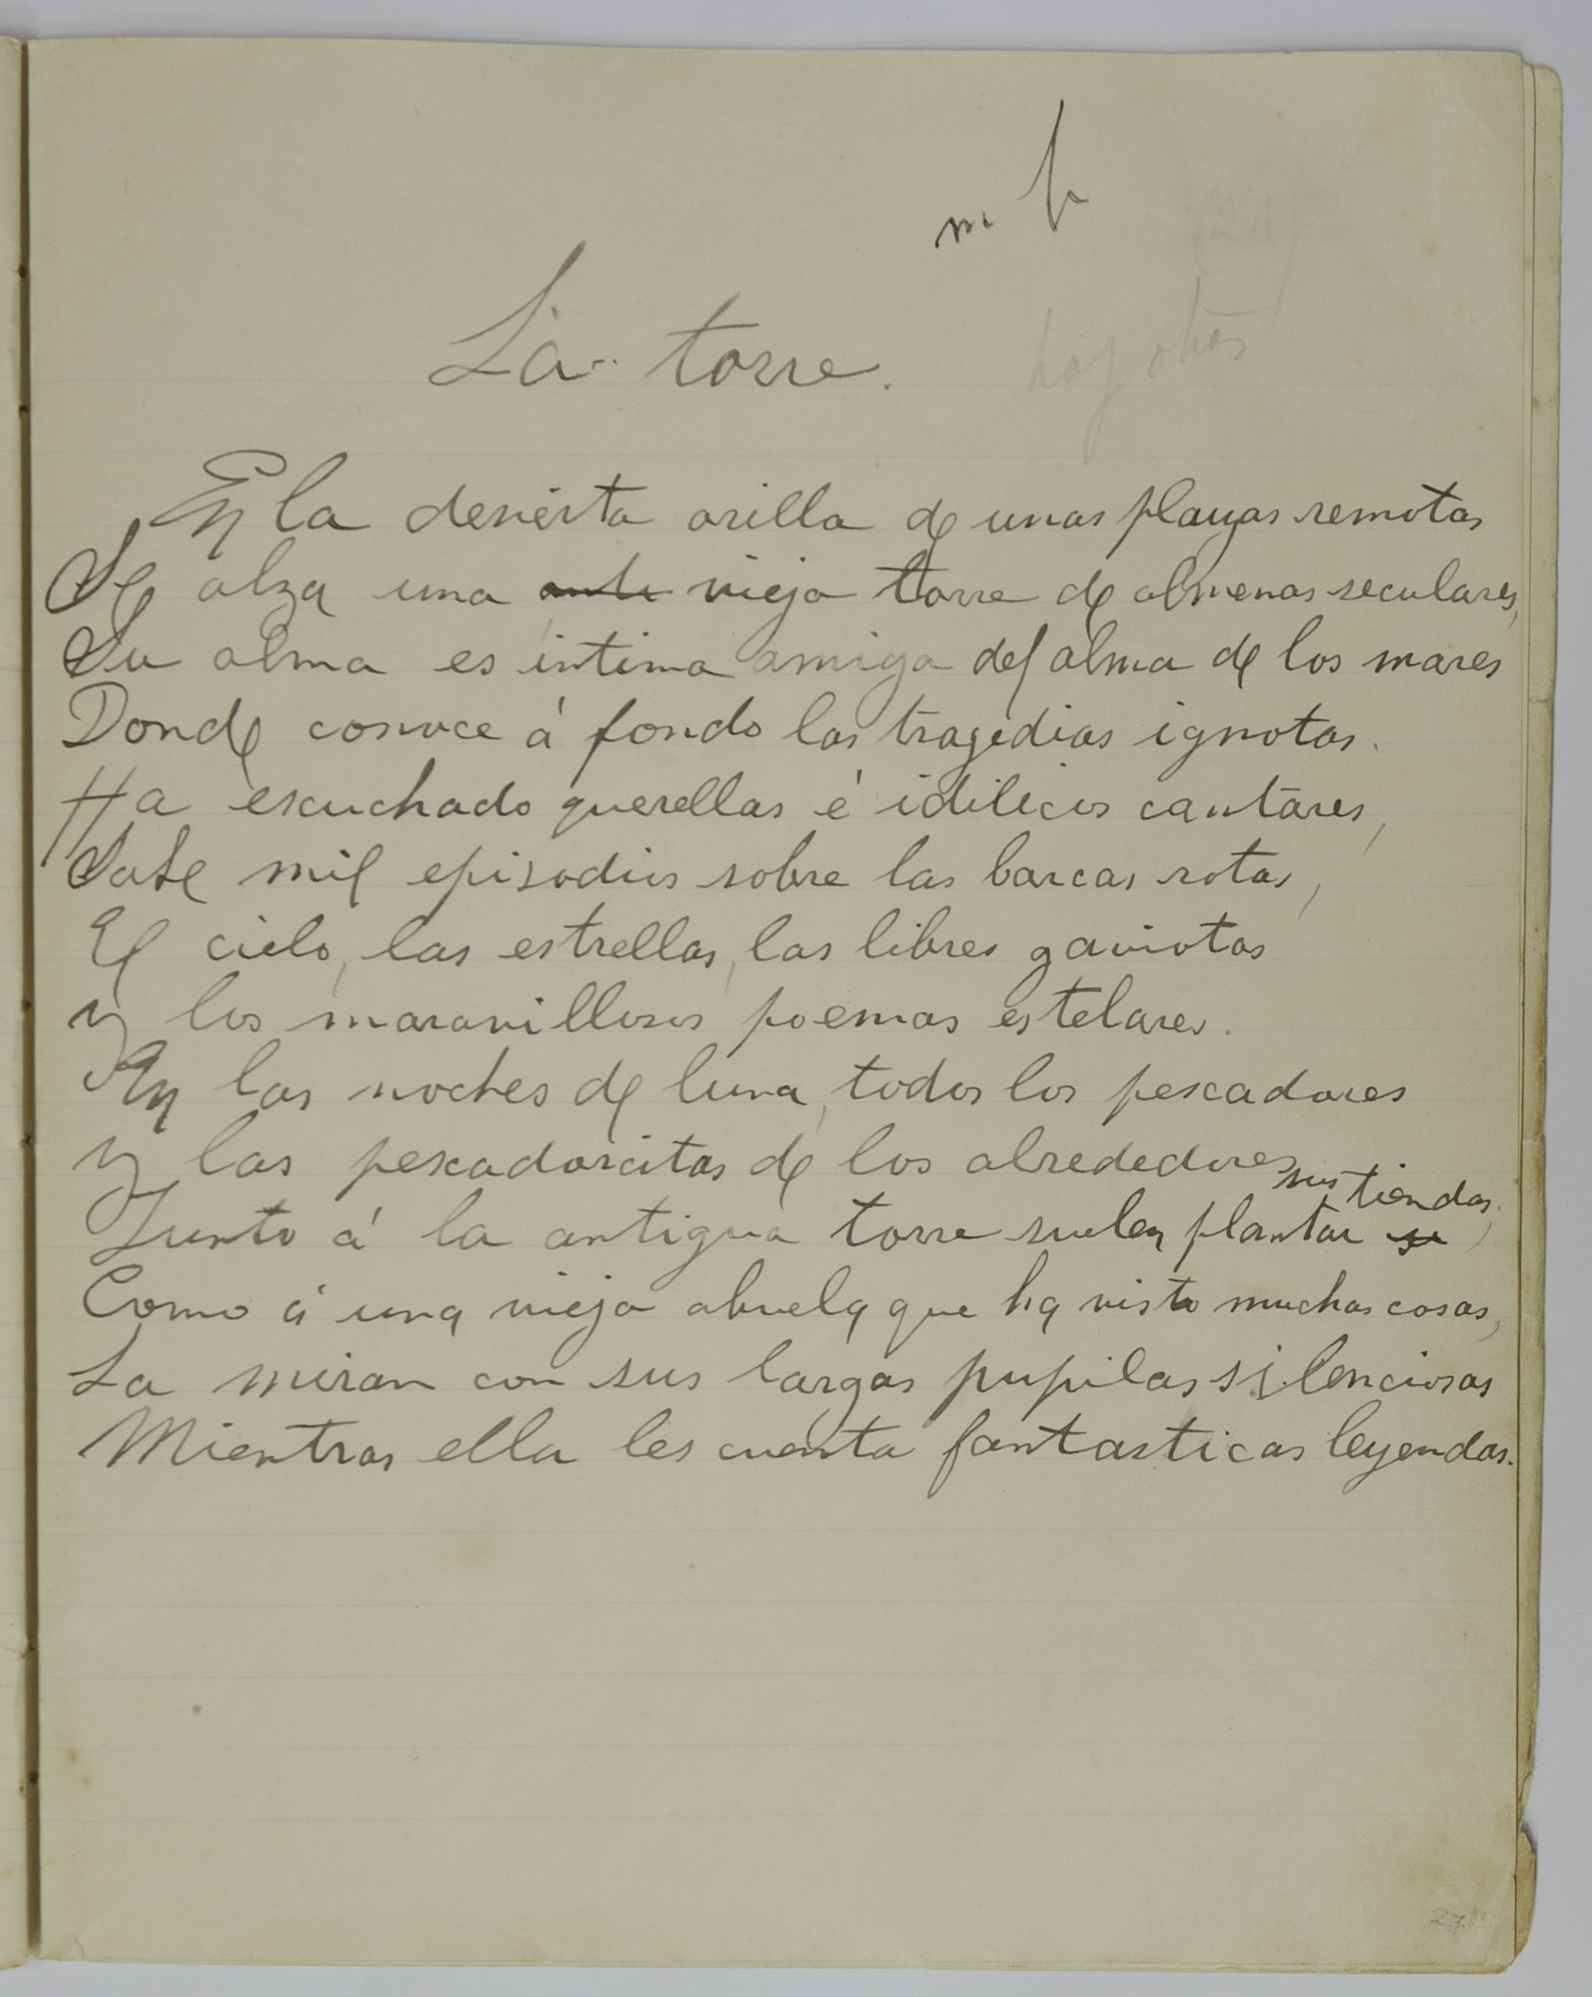 m b
La torre.
hay otras
En la desierta orilla de unas playas remotas
Se alza una vieja torre de almenas seculares,
Su alma es intima amiga del alma de los mares
Donde conoce á fondo las tragedias ignotas.
Ha escuchado querellas é idilicos cantares,
Sabe mil episodios sobre las barcas rotas,
El cielo, las estrellas, las libres gaviotas
y los maravillosos poemas estelares.
En las noches de luna, todos los pescadores
y las pescadorcitas de los alrededores
sus tiendas,
Junto á la antigua torre suelen plantar su
Como á una vieja abuela que ha visto muchas cosas,
La miran con sus largas pupilas silenciosas
Mientras ella les cuenta fantasticas leyendas.
27